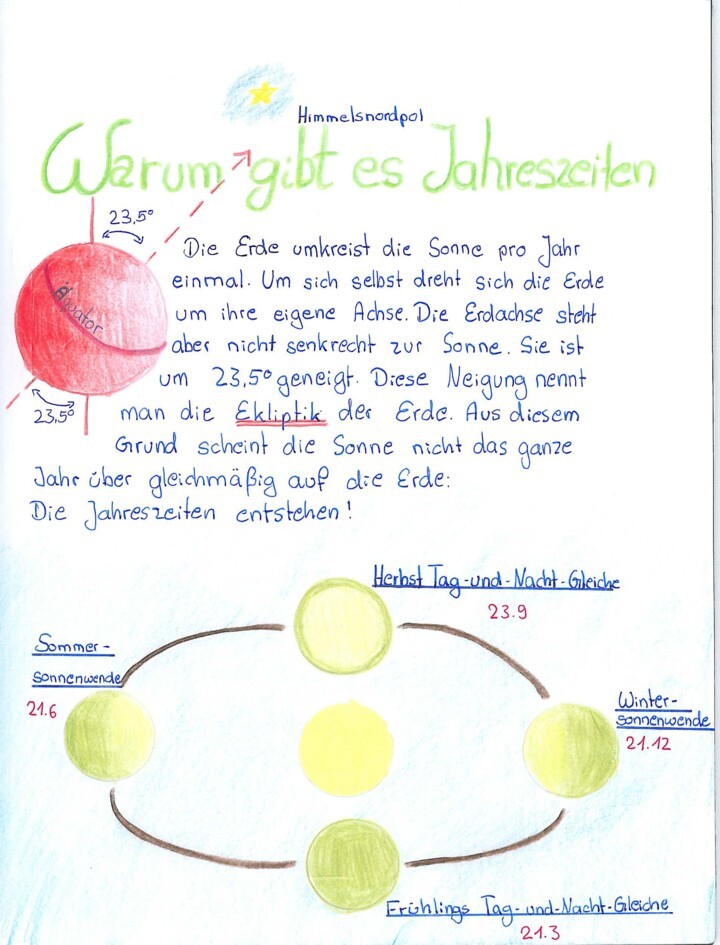 Himmelsnordpol
Warum gibt es Jahreszeiten
23,5°
Äquator
23,5°
Die Erde umkreist die Sonne pro Jahr
einmal. Um sich selbst dreht sich die Erde
um ihre eigene Achse. Die Erdachse steht
aber nicht senkrecht zur Sonne. Sie ist
um 23,5° geneigt. Diese Neigung nennt
man die Ekliptik der Erde. Aus diesem
Grund scheint die Sonne nicht das ganze
Jahr über gleichmäßig auf die Erde:
Die Jahreszeiten entstehen!
Herbst Tag-und-Nacht-Gleiche
23.9
Sommer-
sonnenwende
21.6
Winter-
sonnenwende
21.12
Frühlings Tag-und-Nacht-Gleiche
21.3